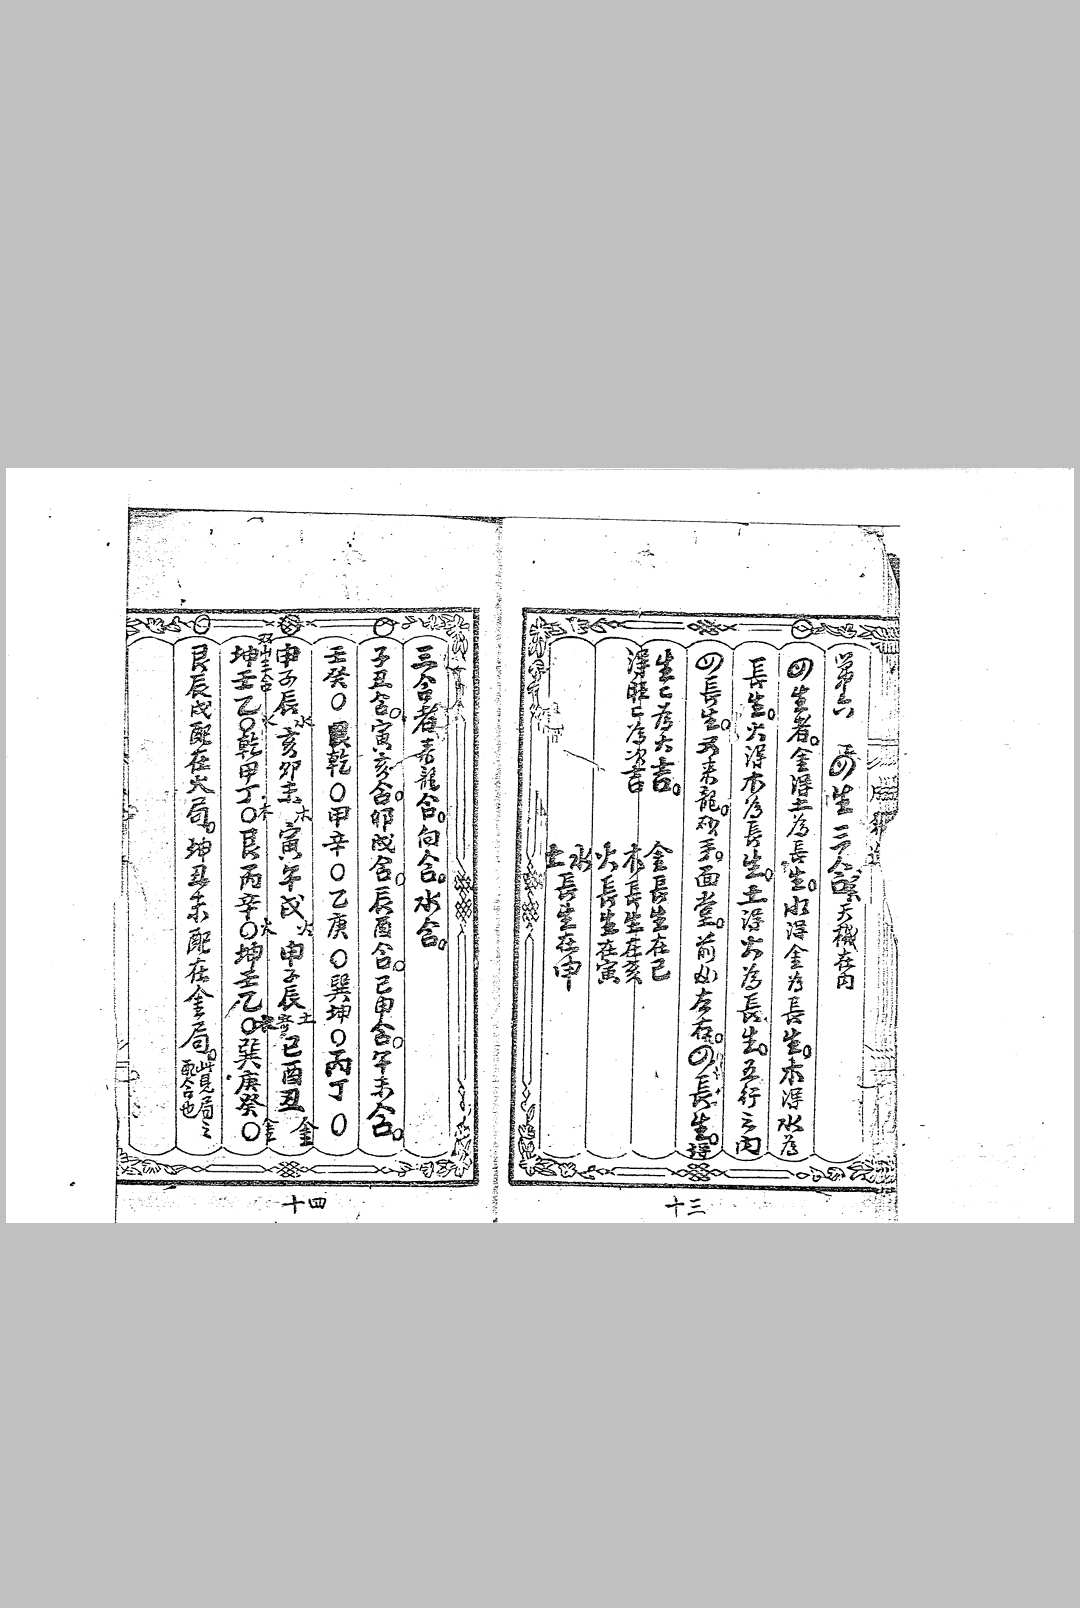 第六 四生三合 天機在內
四生者。金得土為長生。水得金為長生。木得水為
長生。火得木為長生。土得火為長生。五行之內
四長生。為來龍。砂手。面堂。前 左右。四長生。得
生亡為大吉。
得旺亡為次吉
金長生在巳
木長生在亥
火長生在寅
水土長生在申
十三
三合者喜龍合。向合。水合。
子丑合。寅亥合。卯戌合。辰酉合。巳申合。午未合。
壬癸〇艮乾〇甲辛〇乙庚〇巽坤〇丙丁〇
申子辰水亥卯未木寅午戌火申子辰土巳酉丑金
坤壬乙〇水乾甲丁〇木艮丙辛〇火坤壬乙〇巽庚癸〇金
艮辰戌配在火局。坤丑未配在金局。此見局之
配合也
十四